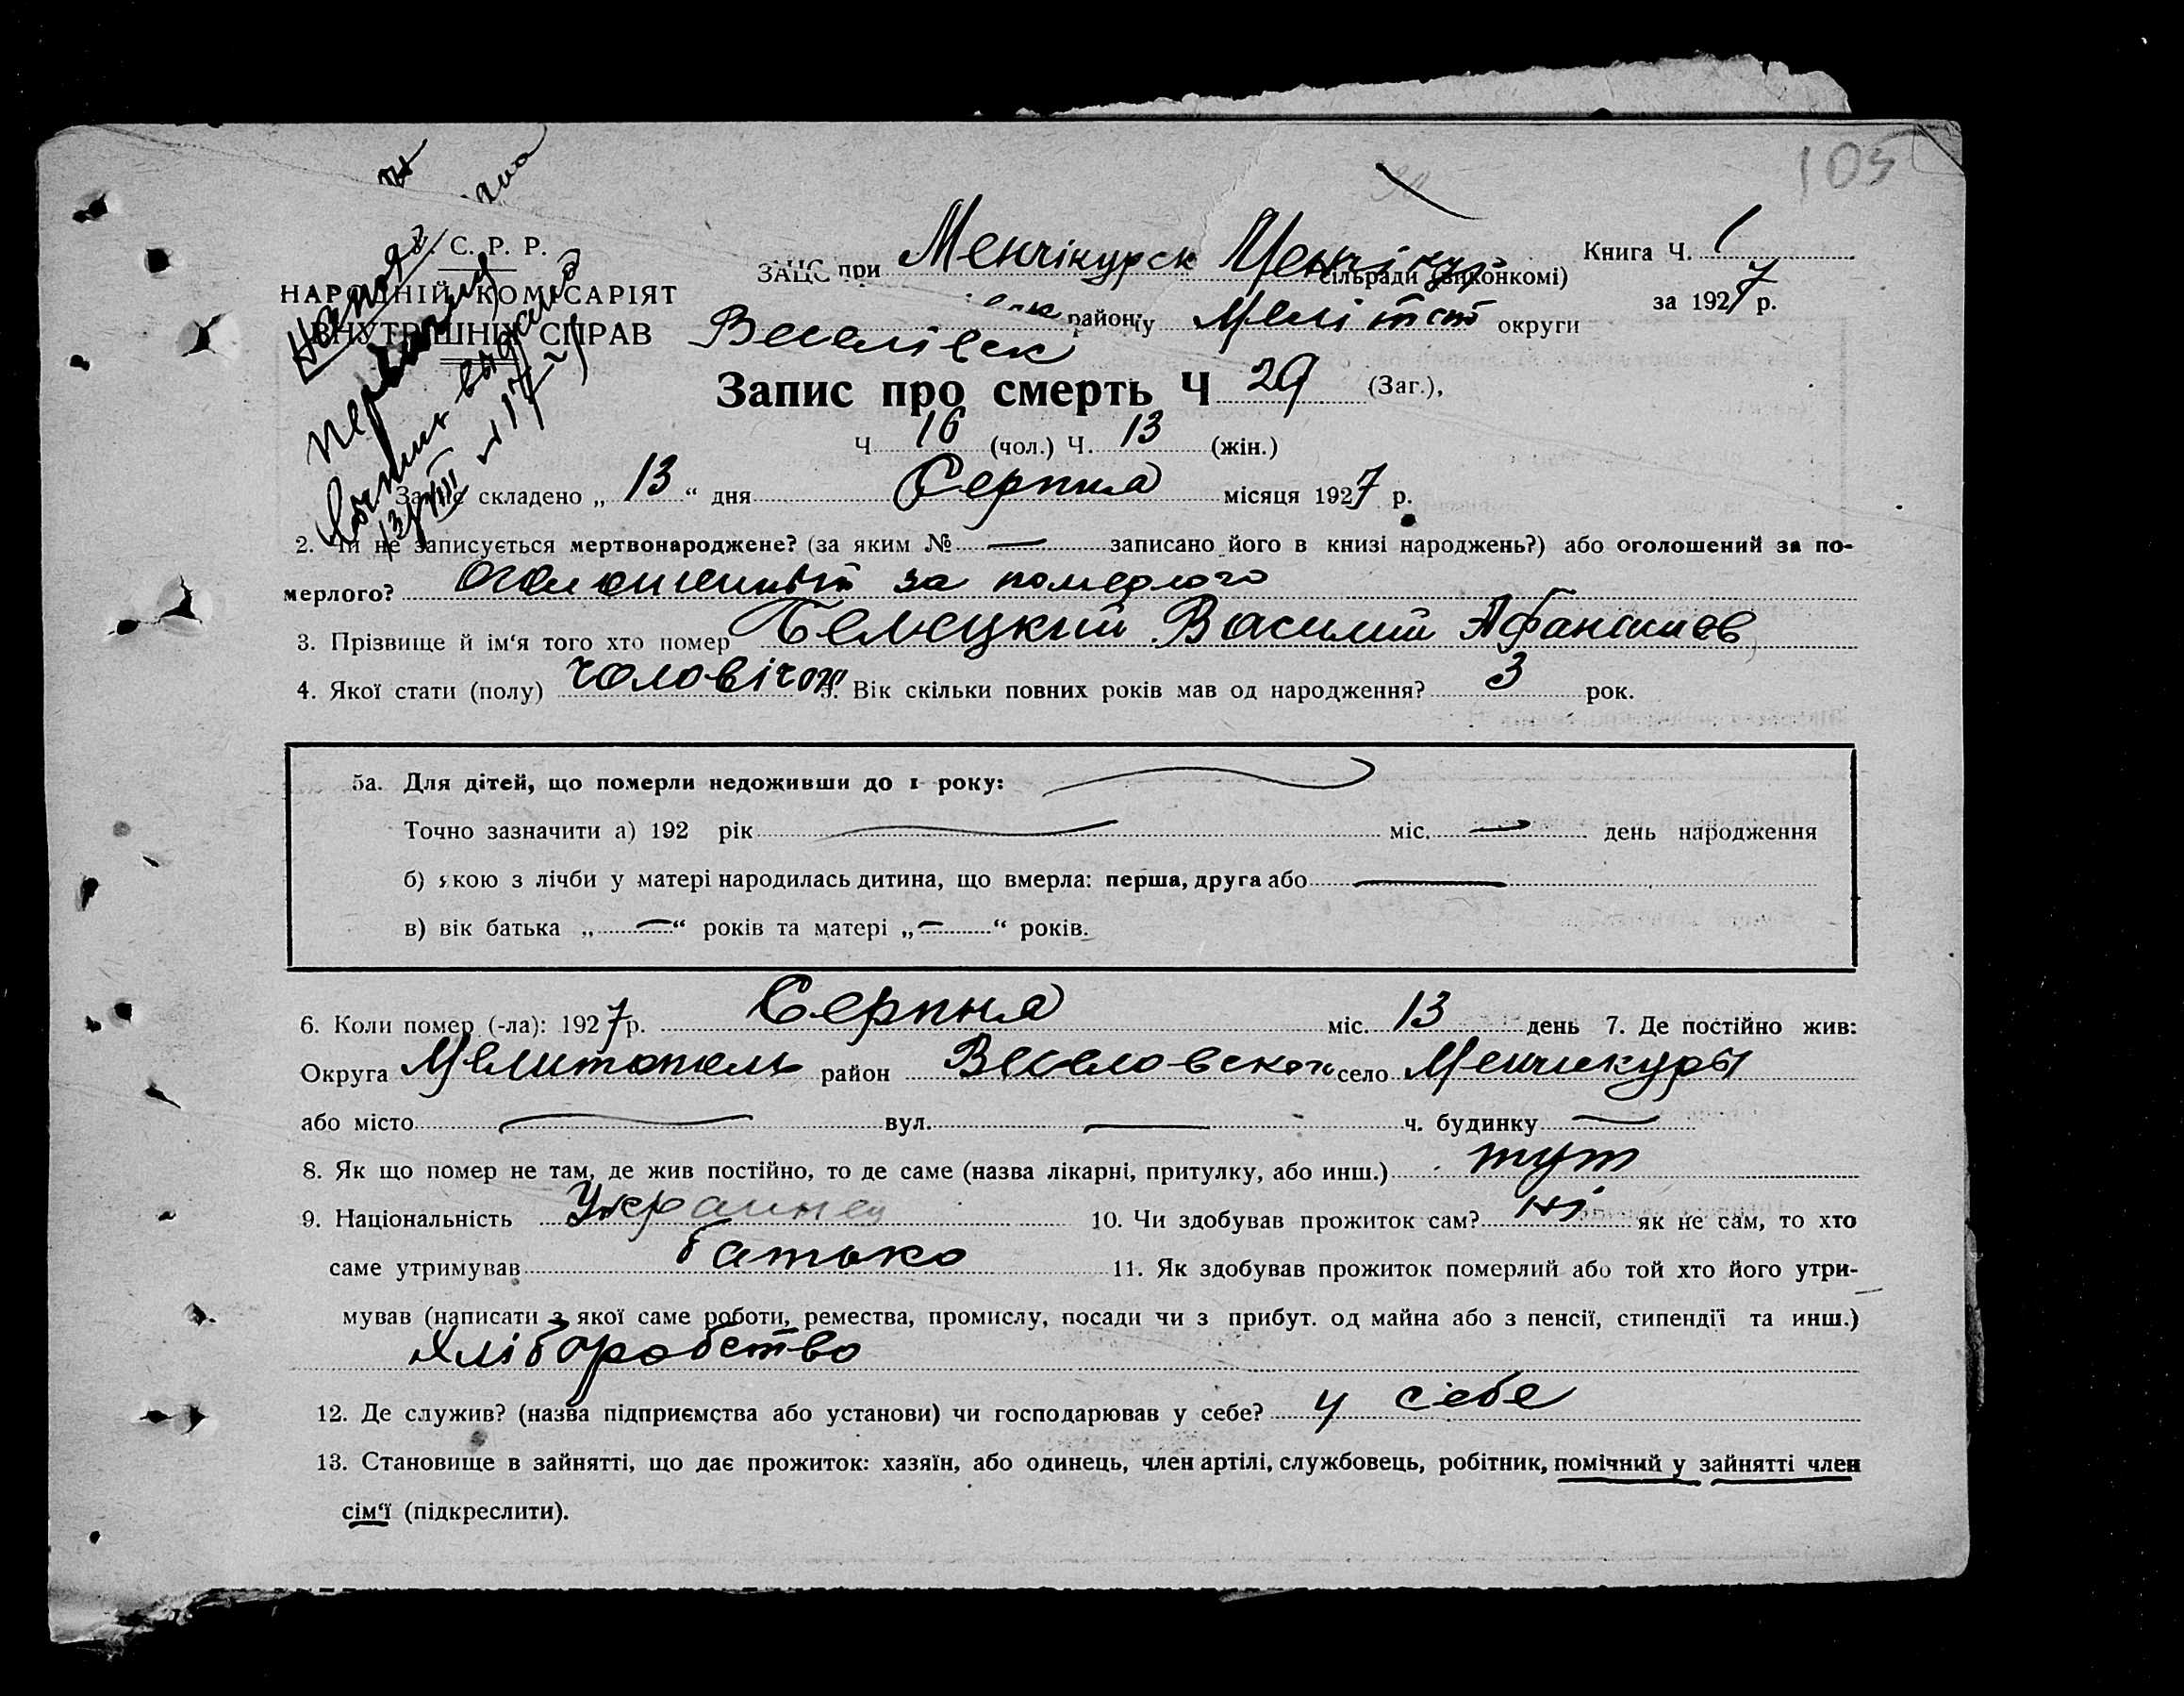 105
С. Р. Р.
НАРОДНІЙ КОМІСАРІЯТ
ВНУТРІШНІХ СПРАВ
ЗАЦС при Менчікурск Менчікур сільради (виконкомі)
Книга Ч. 1
за 1927 р.
Веселівск району Меліт округи
Запис про смерть Ч 29 (Заг.),
Ч 16 (чол.) Ч. 13 (жін.)
Запис складено „ 13 “ дня Серпня місяця 1927 р.
2. Чи не записується мертвонароджене? (за яким № — записано його в книзі народжень?) або оголошений за по-
мерлого? оголошенный за померлого
3. Прізвище й ім‘я того хто помер Белецкий Василий Афанасиев
4. Якої стати (полу) чоловічої 5. Вік скільки повних років мав од народження? 3 рок.
5а. Для дітей, що померли недоживши до 1 року:
Точно зазначити а) 192 рік — міс. — день народження
б) якою з лічби у матері народилась дитина, що вмерла: перша, друга або —
в) вік батька „ — “ років та матері „ — “ років.
6. Коли помер (-ла): 1927 р. Серпня міс. 13 день 7. Де постійно жив:
Округа Мелитополь район Веселовской село Менчикуры
або місто — вул. — ч. будинку —
8. Як що помер не там, де жив постійно, то де саме (назва лікарні, притулку, або инш.) тут
9. Національність Украинец 10. Чи здобував прожиток сам? ні як не сам, то хто
саме утримував батько 11. Як здобував прожиток померлий або той хто його утри-
мував (написати з якої саме роботи, ремества, промислу, посади чи з прибут. од майна або з пенсії, стипендії та инш.)
Хліборобство
12. Де служив? (назва підприємства або установи) чи господарював у себе? у себе
13. Становище в зайнятті, що дає прожиток: хазяїн, або одинець, член артілі, службовець, робітник, помічний у зайнятті член
сім‘ї (підкреслити).